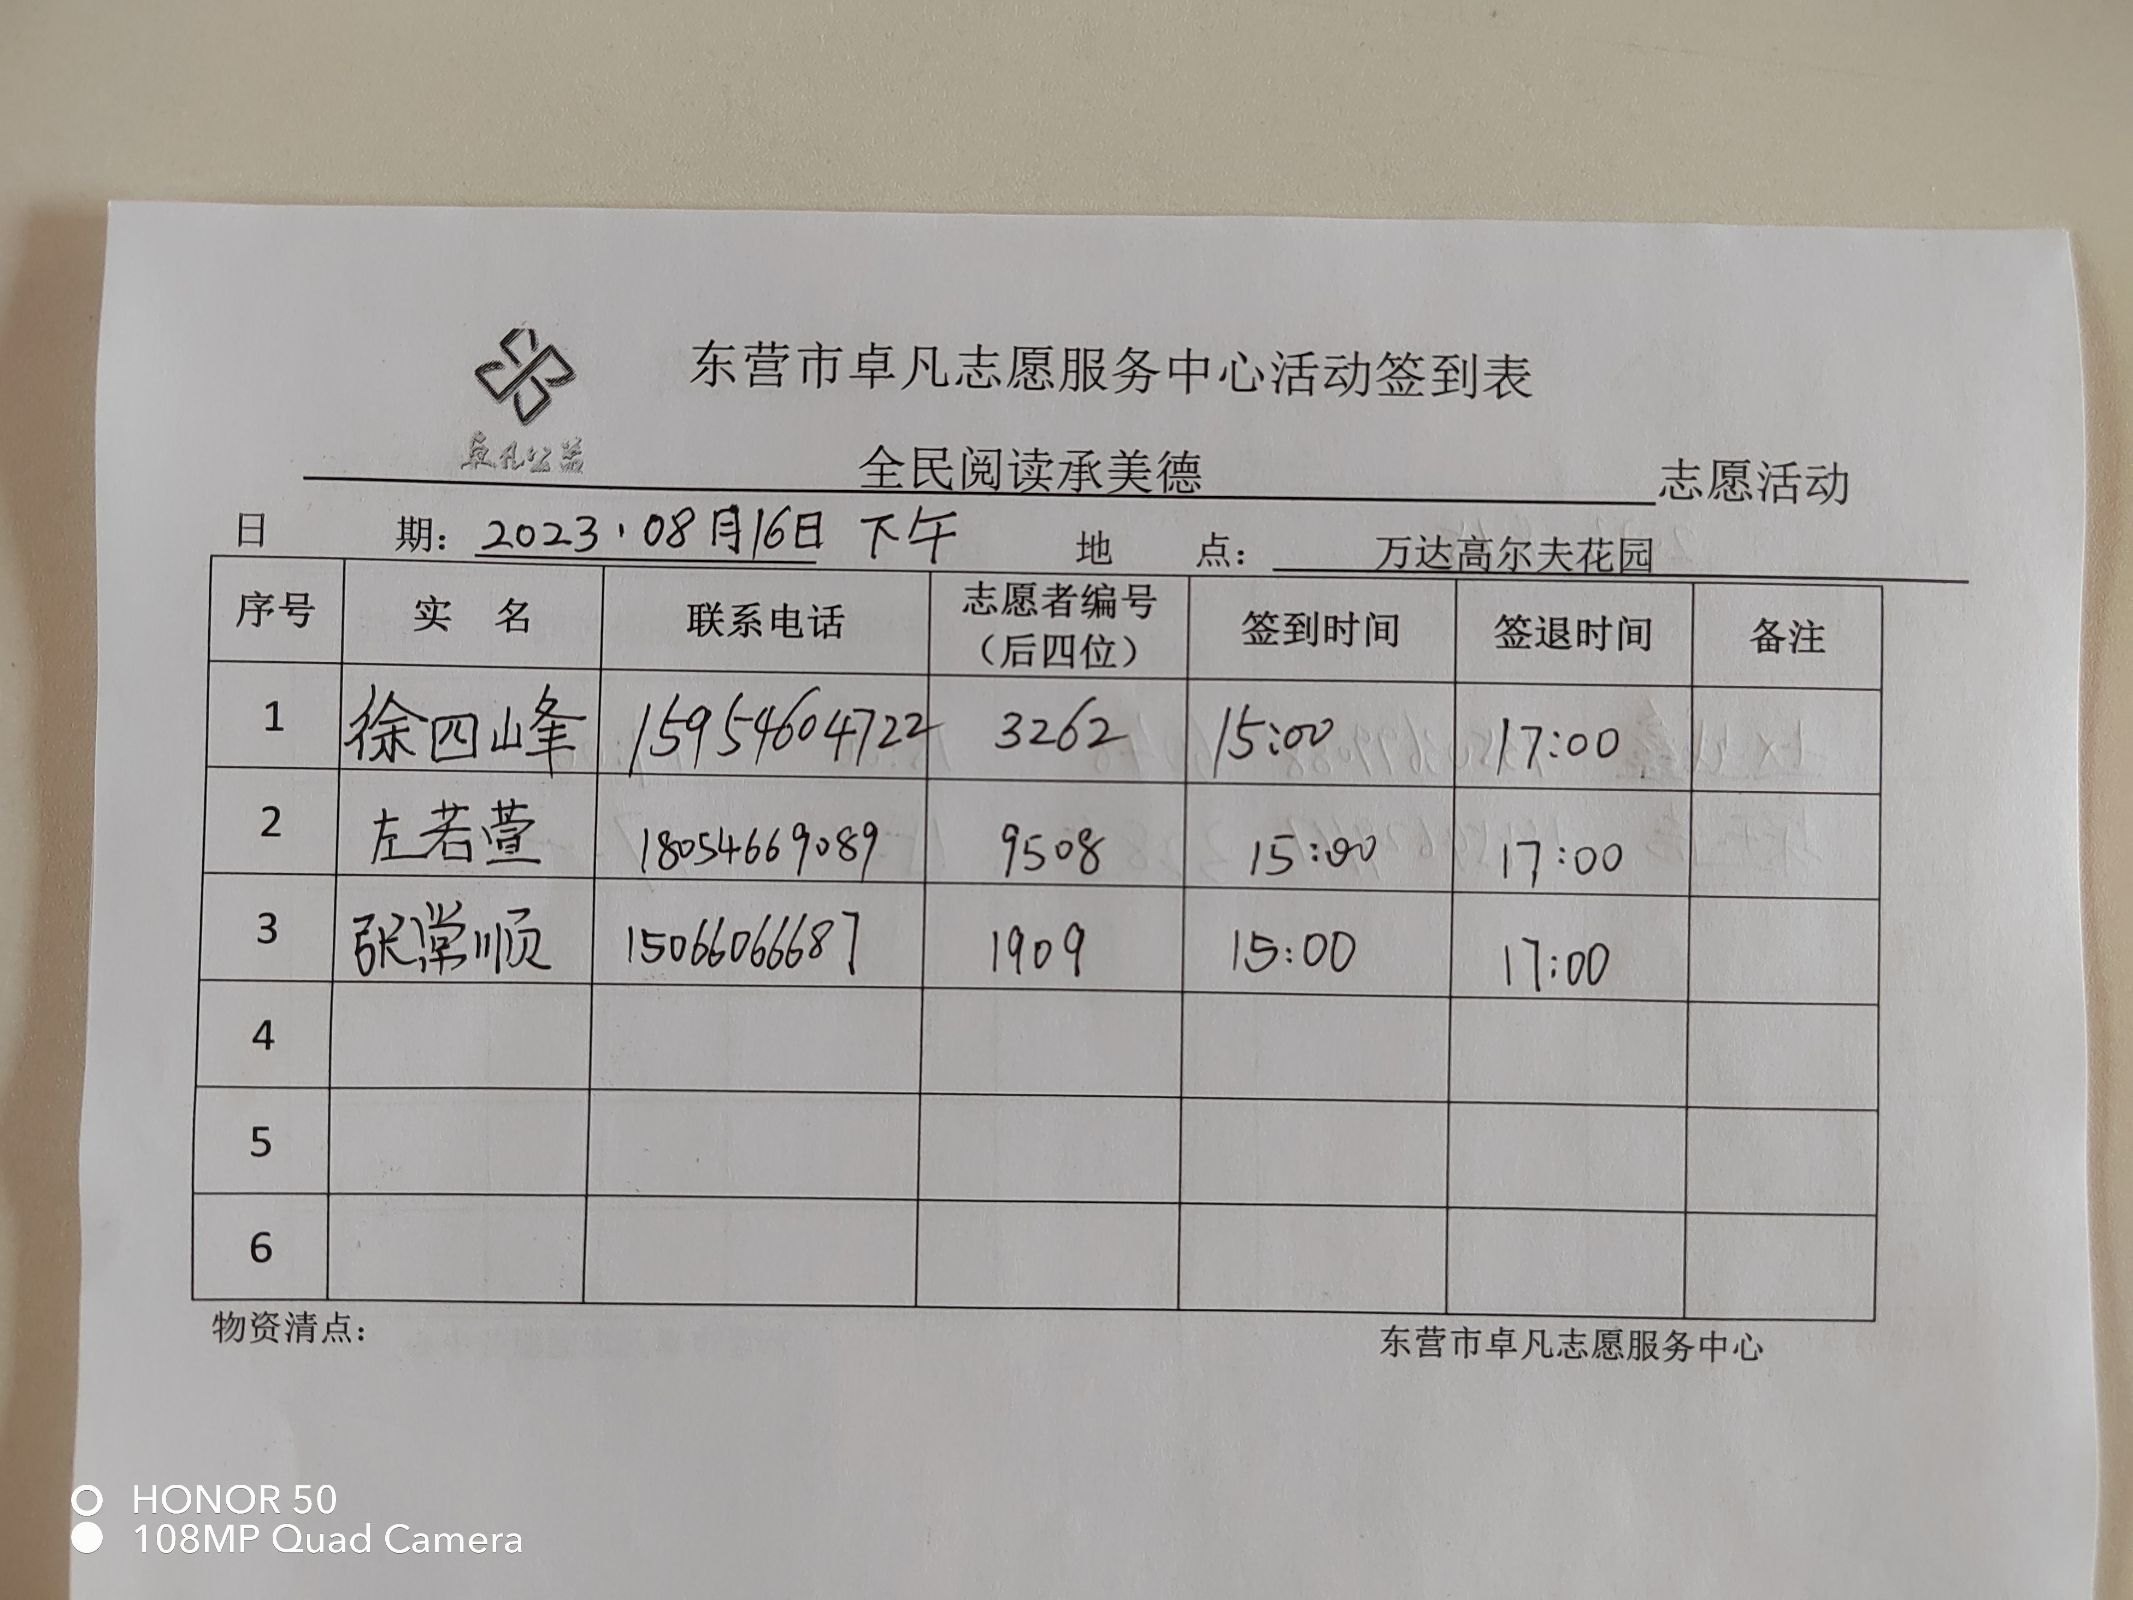 东营市卓凡志愿服务中心活动签到表
卓凡公益
全民阅读承美德 志愿活动
日 期: 2023.08月16日 下午 地 点: 万达高尔夫花园
序号 实 名 联系电话 志愿者编号（后四位） 签到时间 签退时间 备注
1 徐四峰 15954604722 3262 15:00 17:00
2 左若萱 18054669089 9508 15:00 17:00
3 张常顺 15066066687 1909 15:00 17:00
4
5
6
物资清点: 东营市卓凡志愿服务中心
HONOR 50
108MP Quad Camera